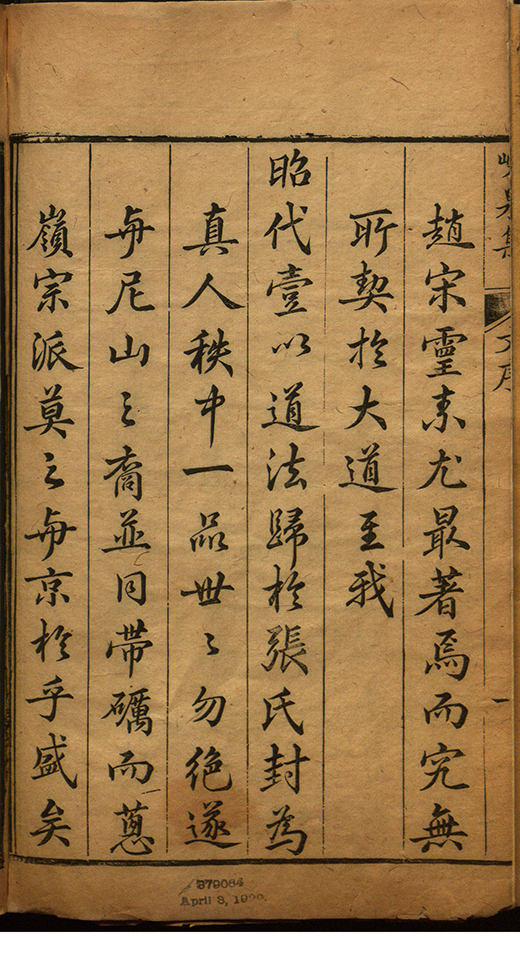 峴泉集
序
一
趙宋靈素尤最著焉而究無
所契於大道至我
昭代壹以道法歸於張氏封為
真人秩中一品世〻勿絕遂
與尼山之裔並同帶礪而蔥
嶺宗派莫之與京於乎盛矣
379064
April 3,